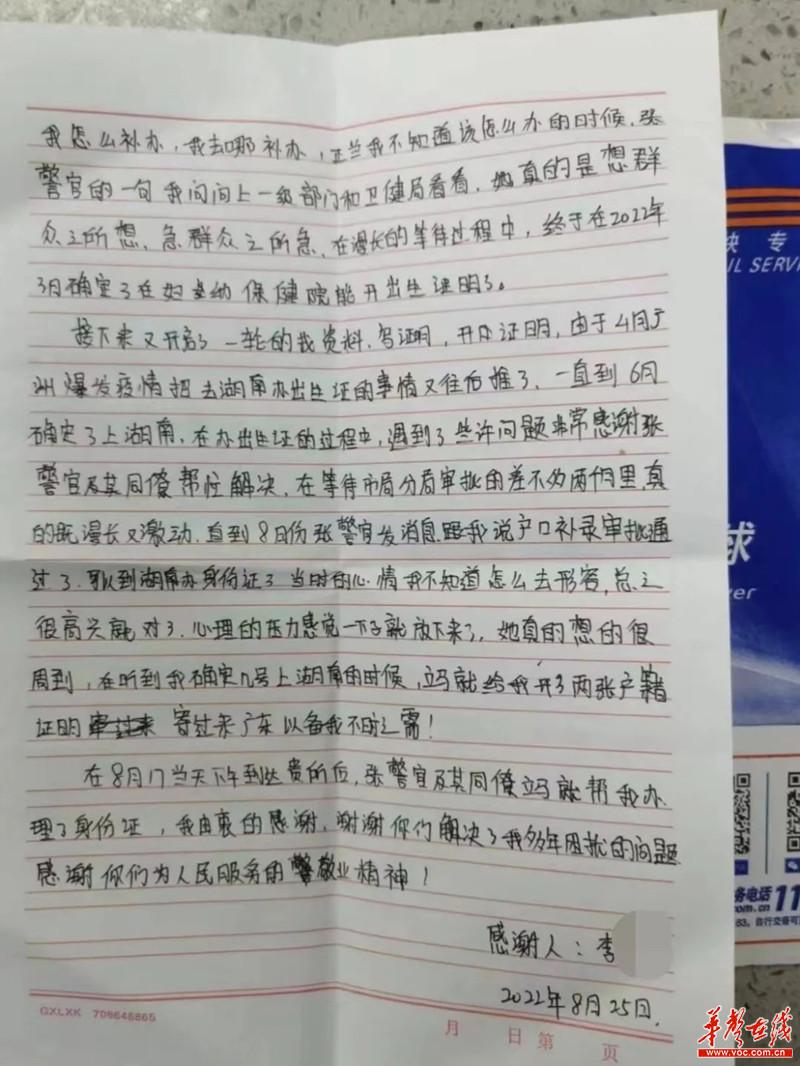 我怎么补办，我去哪补办，正当我不知道该怎么办的时候，张
警官的一句我问问上一级部门和卫健局看看，她真的是想群
众之所想、急群众之所急，在漫长的等待过程中，终于在2022年
3月确定了在妇幼保健院能开出生证明了。
接下来又开启了一轮的找资料，写证明，开介证明，由于4月广
州爆发疫情把去湖南办出生证的事情又往后推了，一直到6月
确定了上湖南，在办出生证的过程中，遇到了些许问题非常感谢张
警官及其同僚帮忙解决，在等待市局分局审批的差不多两个月里，真
的既漫长又激动，直到8月份张警官发消息跟我说户口补录审批通
过了，可以到湖南办身份证了当时的心情我不知道怎么去形容，总之
很高兴就对了，心理的压力感觉一下子就放下来了，她真的想的很
周到，在听到我确定几号上湖南的时候，立马就给我开了两张户籍
证明 寄过来广东以备我不时之需！
在8月17当天下午到达贵所后，张警官及其同僚立马就帮我办
理了身份证，我由衷的感谢，谢谢你们解决了我多年困扰的问题
感谢你们为人民服务的敬业精神！
感谢人：李
2022年8月25日.
GXLXK 709646865
月 日 第 页
快 专
IL SERV
球
ver
务电话 11
com.cn
63，自行交寄可
华声在线
www.voc.com.cn